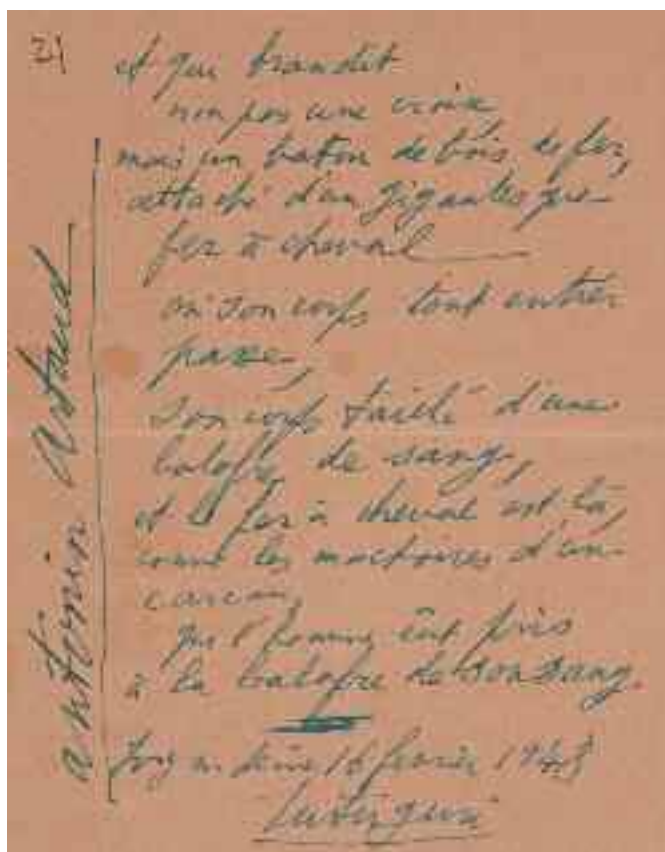 21
et qui brandit
non pas une croix,
mais un baton de bois de fer,
attaché d'un gigantesque
fer à cheval
où son corps tout entier
passe,
son corps taillé d'une
balafre de sang,
et le fer à cheval est là,
comme les machoires d'un
carcan,
que l'homme eût pris
à la balafre de son sang.
Ivry sur Seine 16 février 194
antonin Artaud